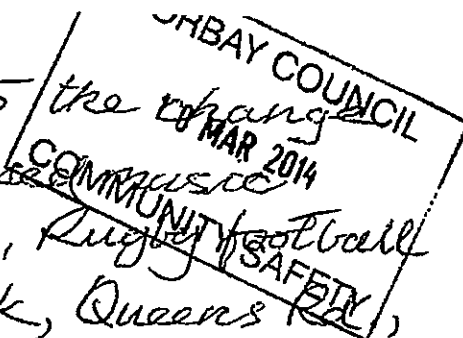 ORBAY COUNCIL
MAR 2014
COMMUNITY SAFETY
the change
music
, Rugby football
k, Queens Rd,